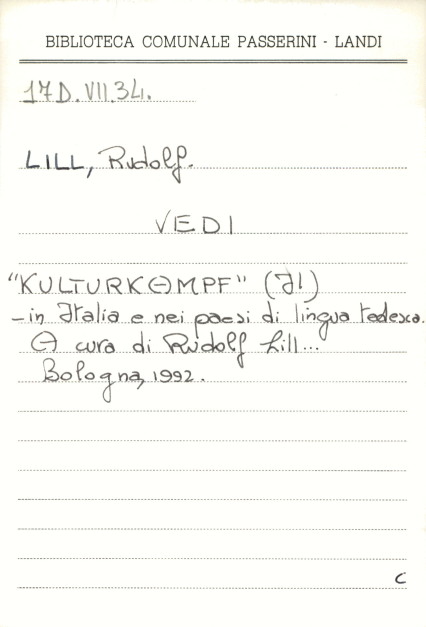 BIBLIOTECA COMUNALE PASSERINI - LANDI
17D.VII.34.
LILL, Rudolf.
VEDI
"KULTURKAMPF" (Il)
-in Italia e nei paesi di lingua tedesca.
A cura di Rudolf Lill...
Bologna, 1992.
C